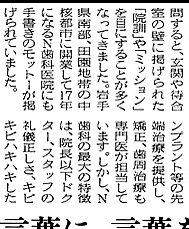 問すると、玄関や待合
室の壁に掲げられた
「院訓」や「ミッション」
を目にすることが多く
なってきました。岩手
県南部・田園地帯の中
核都市に開業して17年
になるN歯科医院にも
手書きのモットーが掲
げられていました。
ンプラント等の先
端治療を提供し、
矯正、歯周治療も
専門医が担当して
います。しかし、N
歯科の最大の特徴
は、院長以下ドク
ター、スタッフの
礼儀正しさ、キビ
キビハキハキした